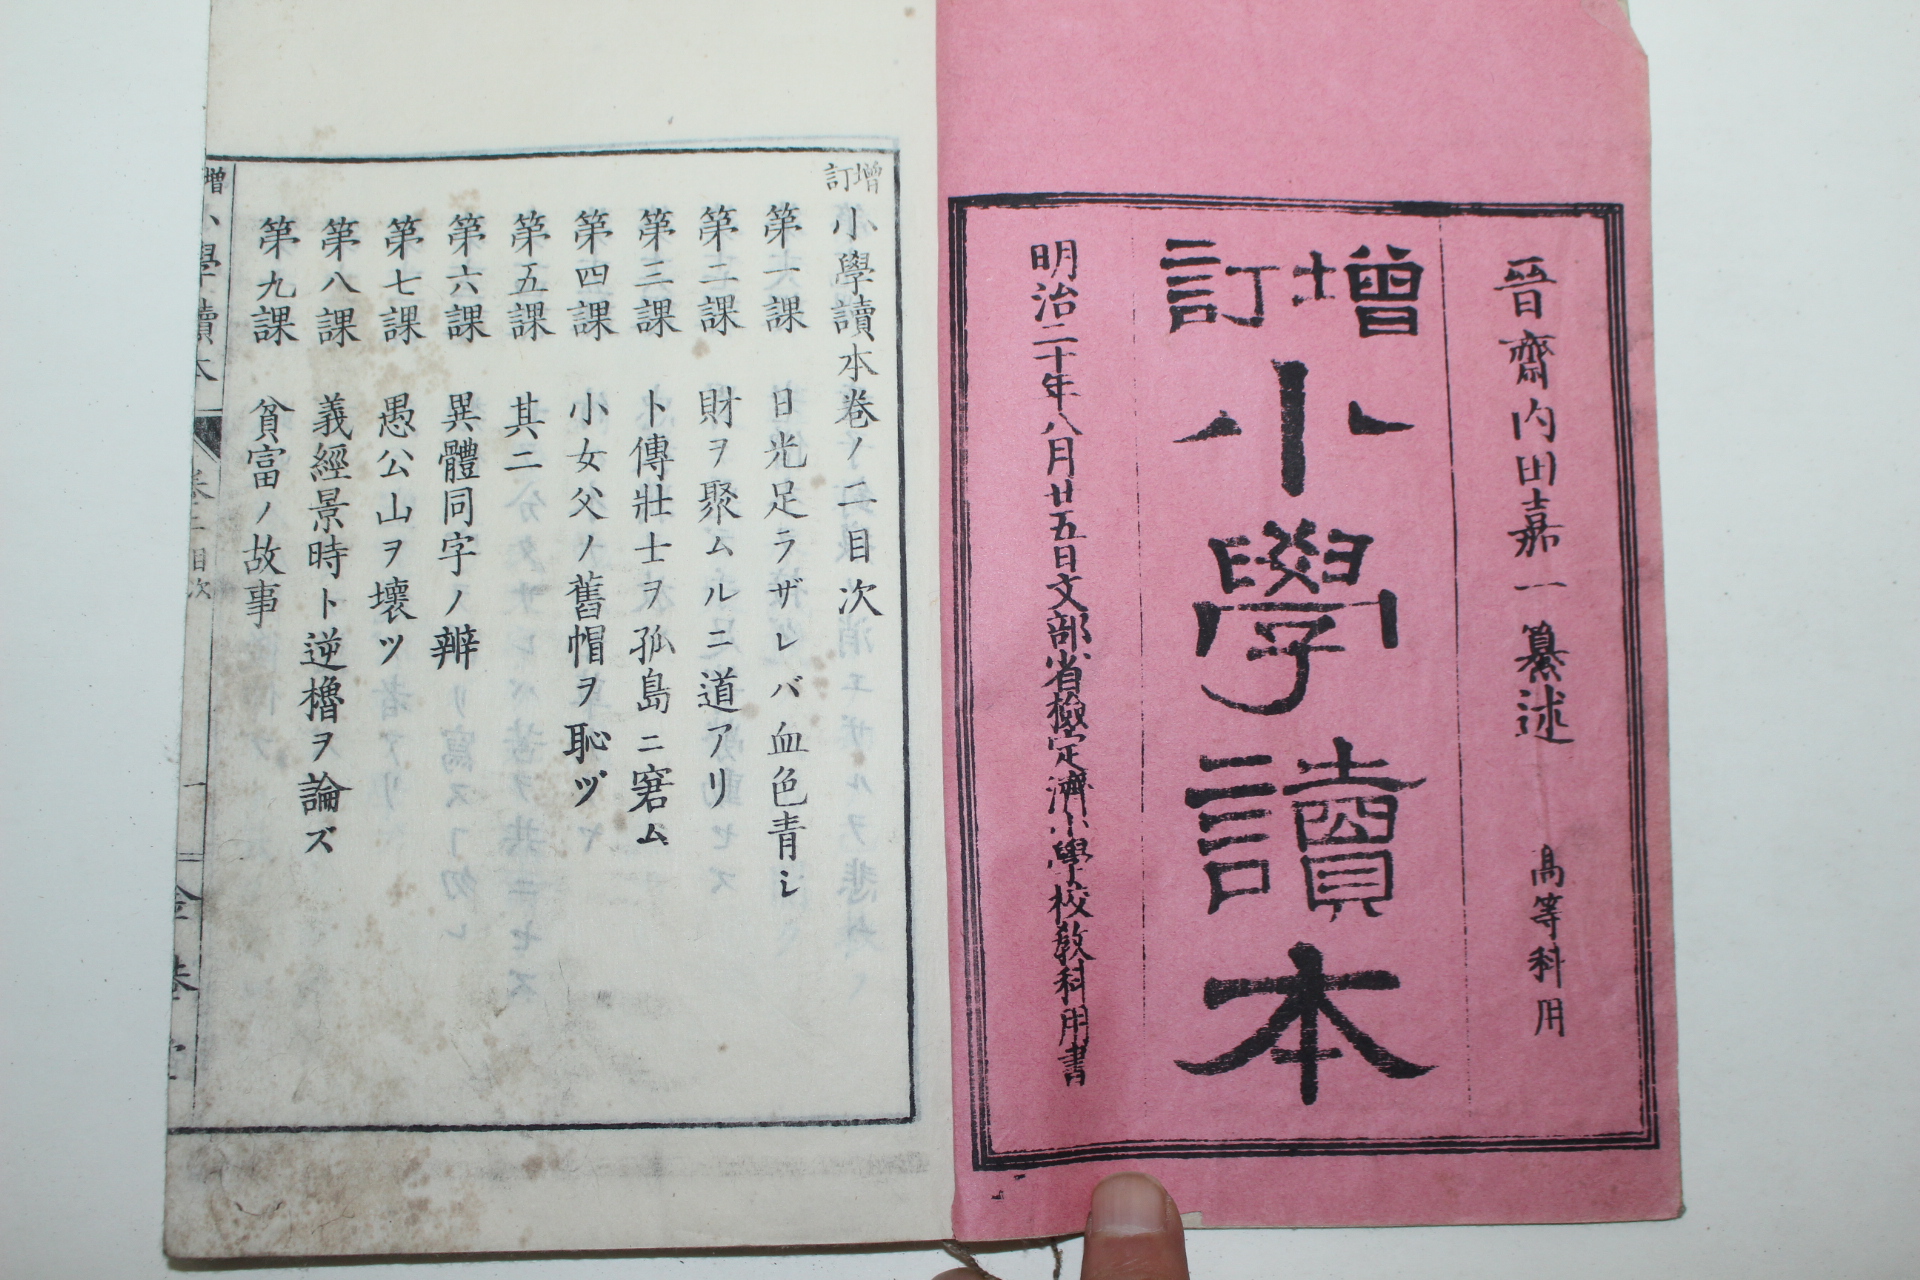 晉齋內田嘉一纂述 高等科用
增訂小學讀本
明治二十年八月廿五日文部省檢定濟小學校教科用書
增訂小學讀本卷ノ二目次
第一課 日光足ラザレバ血色靑シ
第二課 財ヲ聚ムルニ道アリ
第三課 卜傳壯士ヲ孤島ニ窘ム
第四課 小女父ノ舊帽ヲ恥ヅ
第五課 其二
第六課 異體同字ノ辨
第七課 愚公山ヲ壞ツ
第八課 義經景時ト逆櫓ヲ論ズ
第九課 貧富ノ故事
增 小學讀本 卷二 目次 一 金港堂